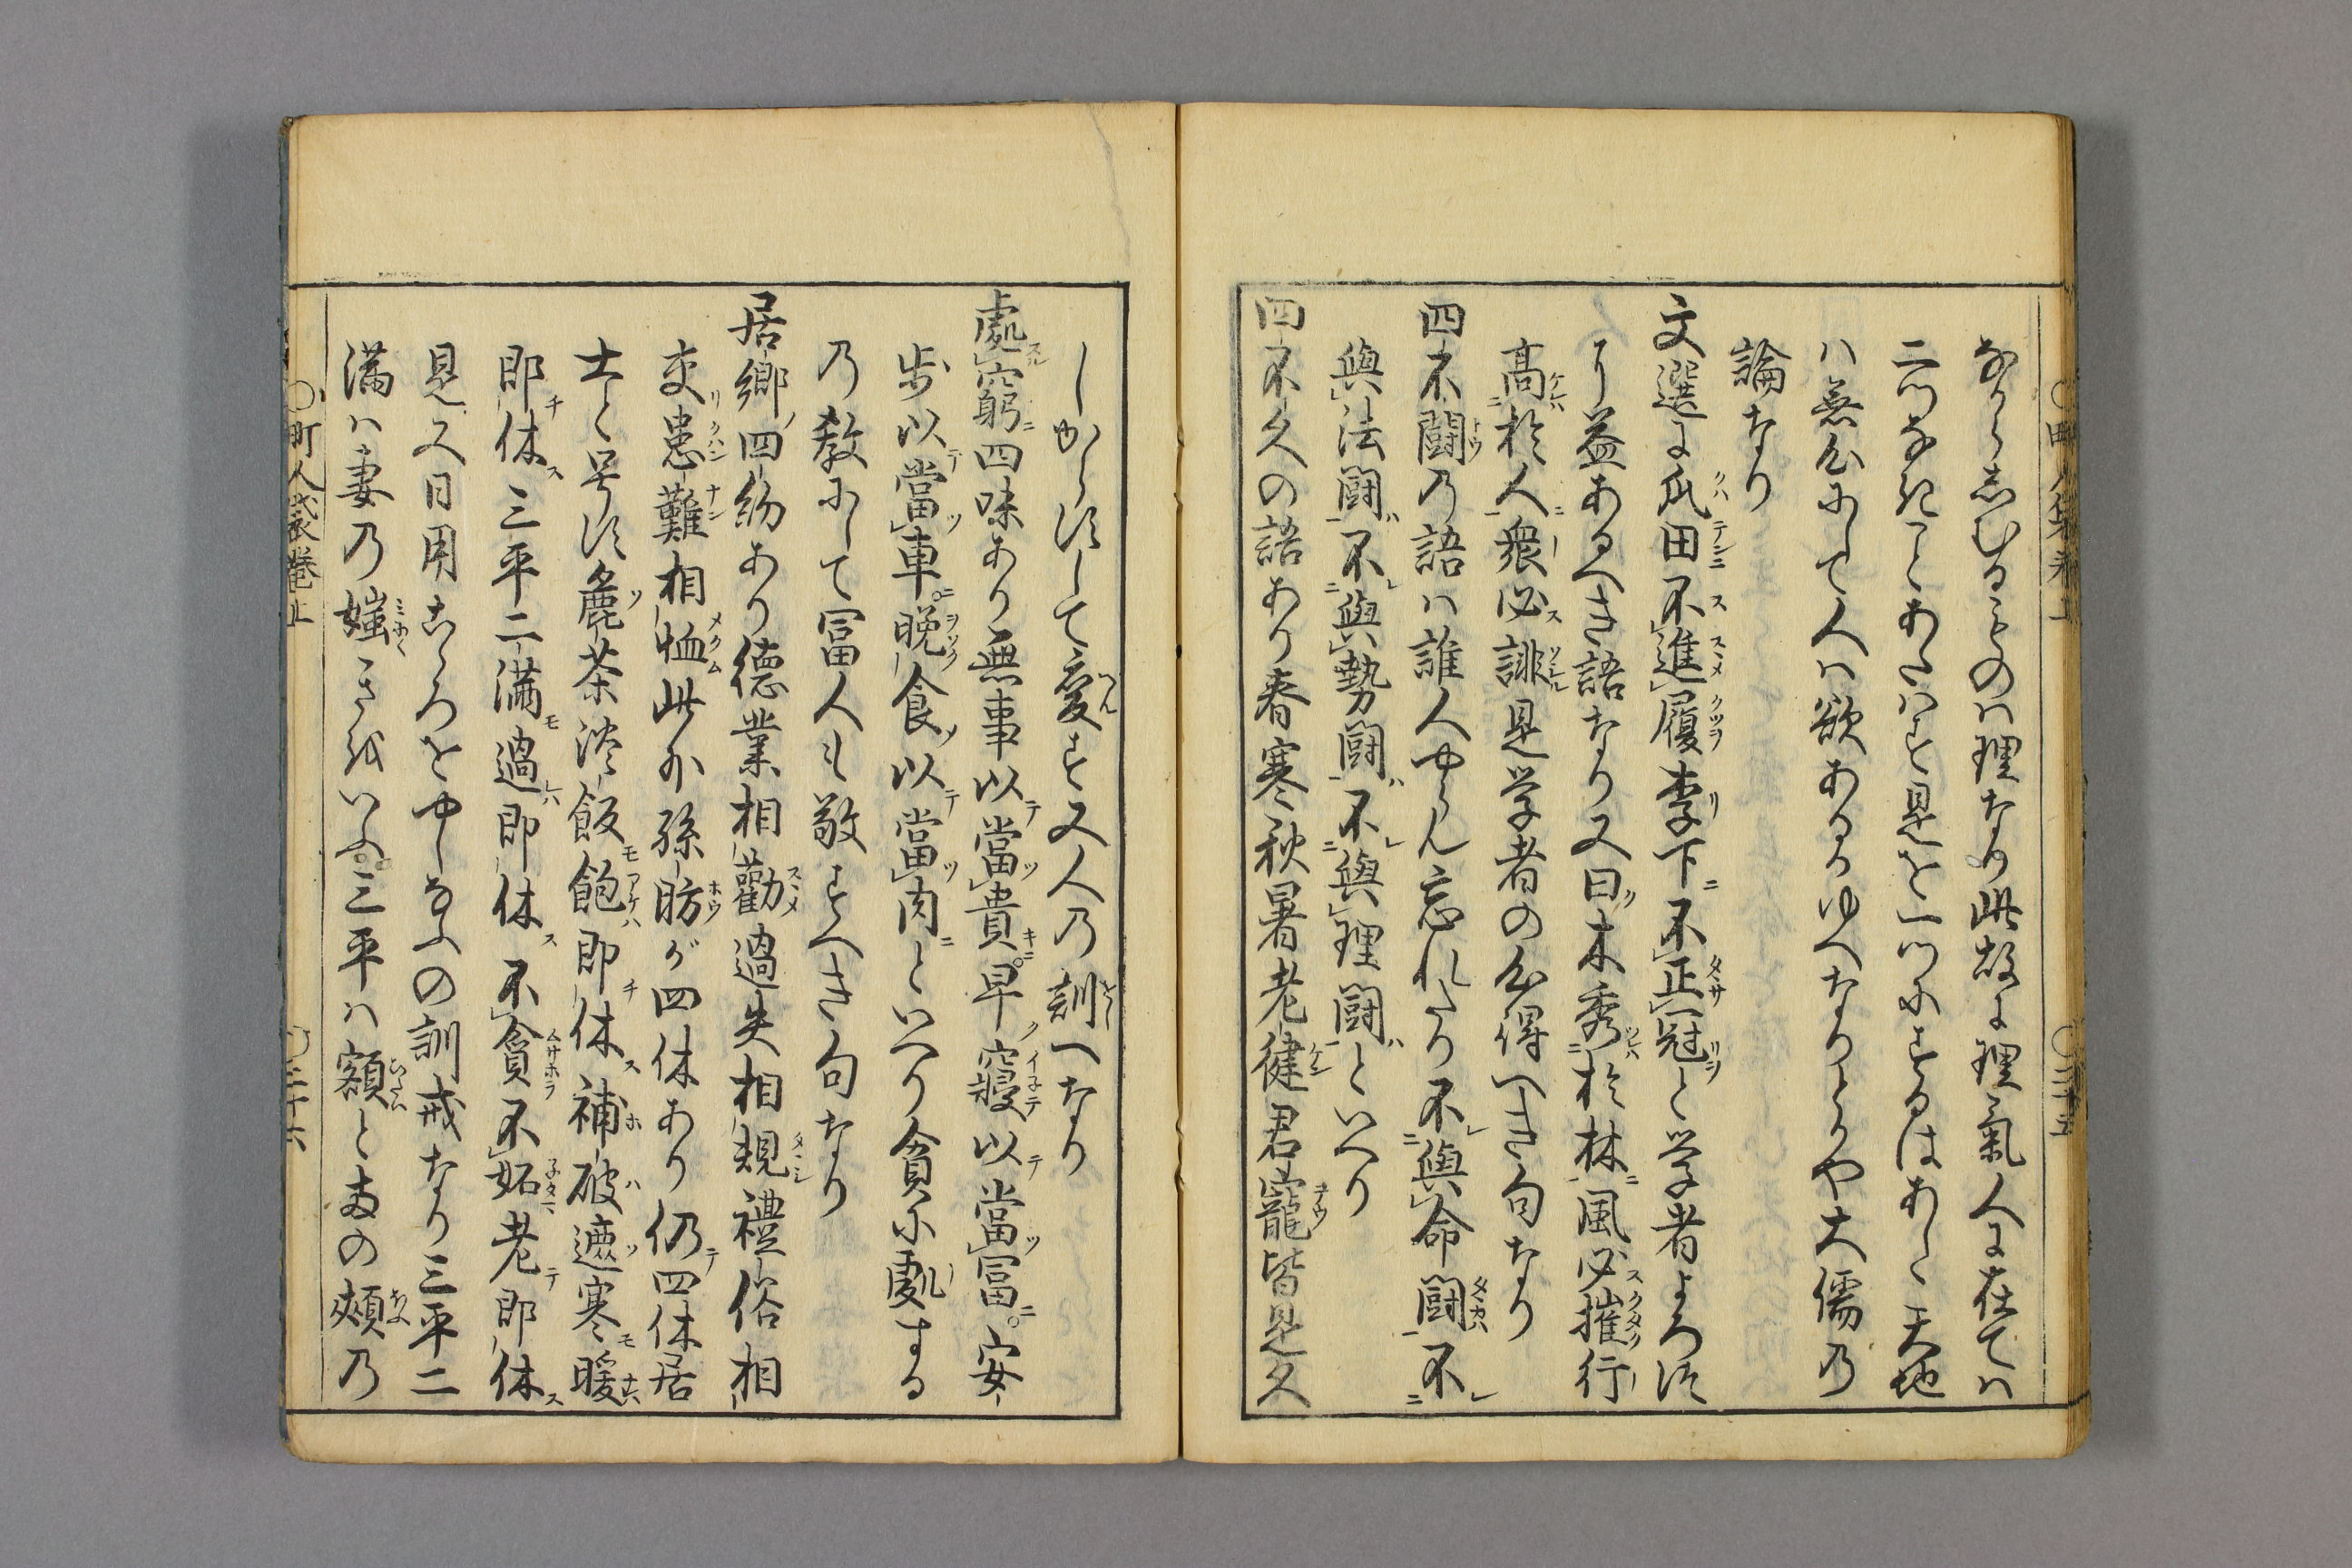 ならしむるものは理なり此故に理氣人に在てハ
二つなきことあたはす是を一つにするはあし天地
ハ無心にして人ハ欲あるかゆへなりとかや大儒乃
論なり
文選に瓜田不進履李下不正冠と学者よろす
に益あるへき語なり又曰木秀於林風必摧行
高於人衆必誹是学者の心得へき句なり
四不闘乃語ハ誰人やらん忘れたり不與命闘不
與法闘不與勢闘不與理闘といへり
四不久の語あり春寒秋暑老健君寵皆是久
しからすして変す又人乃訓へなり
處窮四味あり無事以當貴早寢以當冨安
歩以當車晩食以當肉といへり貪に處する
乃教にして冨人も敬すへき句なり
居鄉四約あり德業相勸過失相規禮俗相
交患難相恤此外孫昉が四休あり仍四休居
士と号す麁茶淡飯飽即休補破遮寒暖
即休三平二滿過即休不貪不妬老即休
是又日用こゝろをやしなふの訓戒なり三平二
滿ハ妻乃媸きをいふ三平ハ額と鼻の頰乃
〇町人袋巻上
〇二十五
〇町人袋巻上
〇二十六